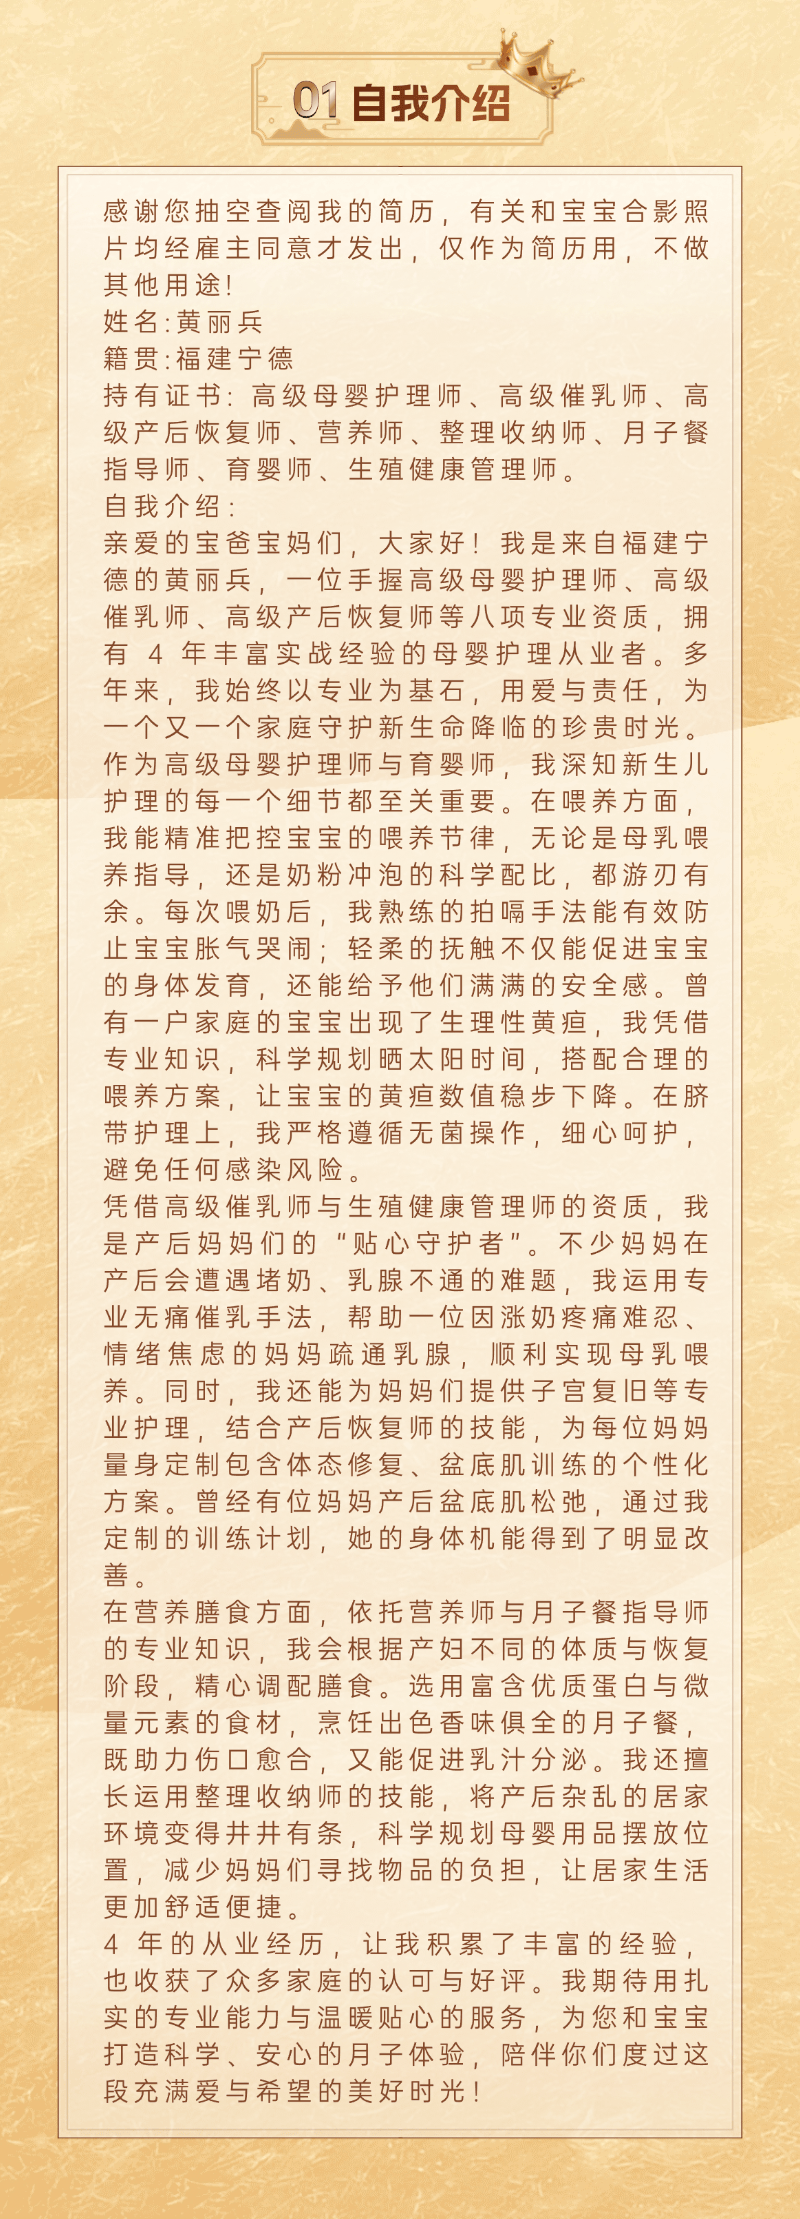 01 自我介绍
感谢您抽空查阅我的简历，有关和宝宝合影照
片均经雇主同意才发出，仅作为简历用，不做
其他用途！
姓名：黄丽兵
籍贯：福建宁德
持有证书：高级母婴护理师、高级催乳师、高
级产后恢复师、营养师、整理收纳师、月子餐
指导师、育婴师、生殖健康管理师。
自我介绍：
亲爱的宝爸宝妈们，大家好！我是来自福建宁
德的黄丽兵，一位手握高级母婴护理师、高级
催乳师、高级产后恢复师等八项专业资质，拥
有 4 年丰富实战经验的母婴护理从业者。多
年来，我始终以专业为基石，用爱与责任，为
一个又一个家庭守护新生命降临的珍贵时光。
作为高级母婴护理师与育婴师，我深知新生儿
护理的每一个细节都至关重要。在喂养方面，
我能精准把控宝宝的喂养节律，无论是母乳喂
养指导，还是奶粉冲泡的科学配比，都游刃有
余。每次喂奶后，我熟练的拍嗝手法能有效防
止宝宝胀气哭闹；轻柔的抚触不仅能促进宝宝
的身体发育，还能给予他们满满的安全感。曾
有一户家庭的宝宝出现了生理性黄疸，我凭借
专业知识，科学规划晒太阳时间，搭配合理的
喂养方案，让宝宝的黄疸数值稳步下降。在脐
带护理上，我严格遵循无菌操作，细心呵护，
避免任何感染风险。
凭借高级催乳师与生殖健康管理师的资质，我
是产后妈妈们的 “贴心守护者”。不少妈妈在
产后会遭遇堵奶、乳腺不通的难题，我运用专
业无痛催乳手法，帮助一位因涨奶疼痛难忍、
情绪焦虑的妈妈疏通乳腺，顺利实现母乳喂
养。同时，我还能为妈妈们提供子宫复旧等专
业护理，结合产后恢复师的技能，为每位妈妈
量身定制包含体态修复、盆底肌训练的个性化
方案。曾经有位妈妈产后盆底肌松弛，通过我
定制的训练计划，她的身体机能得到了明显改
善。
在营养膳食方面，依托营养师与月子餐指导师
的专业知识，我会根据产妇不同的体质与恢复
阶段，精心调配膳食。选用富含优质蛋白与微
量元素的食材，烹饪出色香味俱全的月子餐，
既助力伤口愈合，又能促进乳汁分泌。我还擅
长运用整理收纳师的技能，将产后杂乱的居家
环境变得井井有条，科学规划母婴用品摆放位
置，减少妈妈们寻找物品的负担，让居家生活
更加舒适便捷。
4 年的从业经历，让我积累了丰富的经验，
也收获了众多家庭的认可与好评。我期待用扎
实的专业能力与温暖贴心的服务，为您和宝宝
打造科学、安心的月子体验，陪伴你们度过这
段充满爱与希望的美好时光！